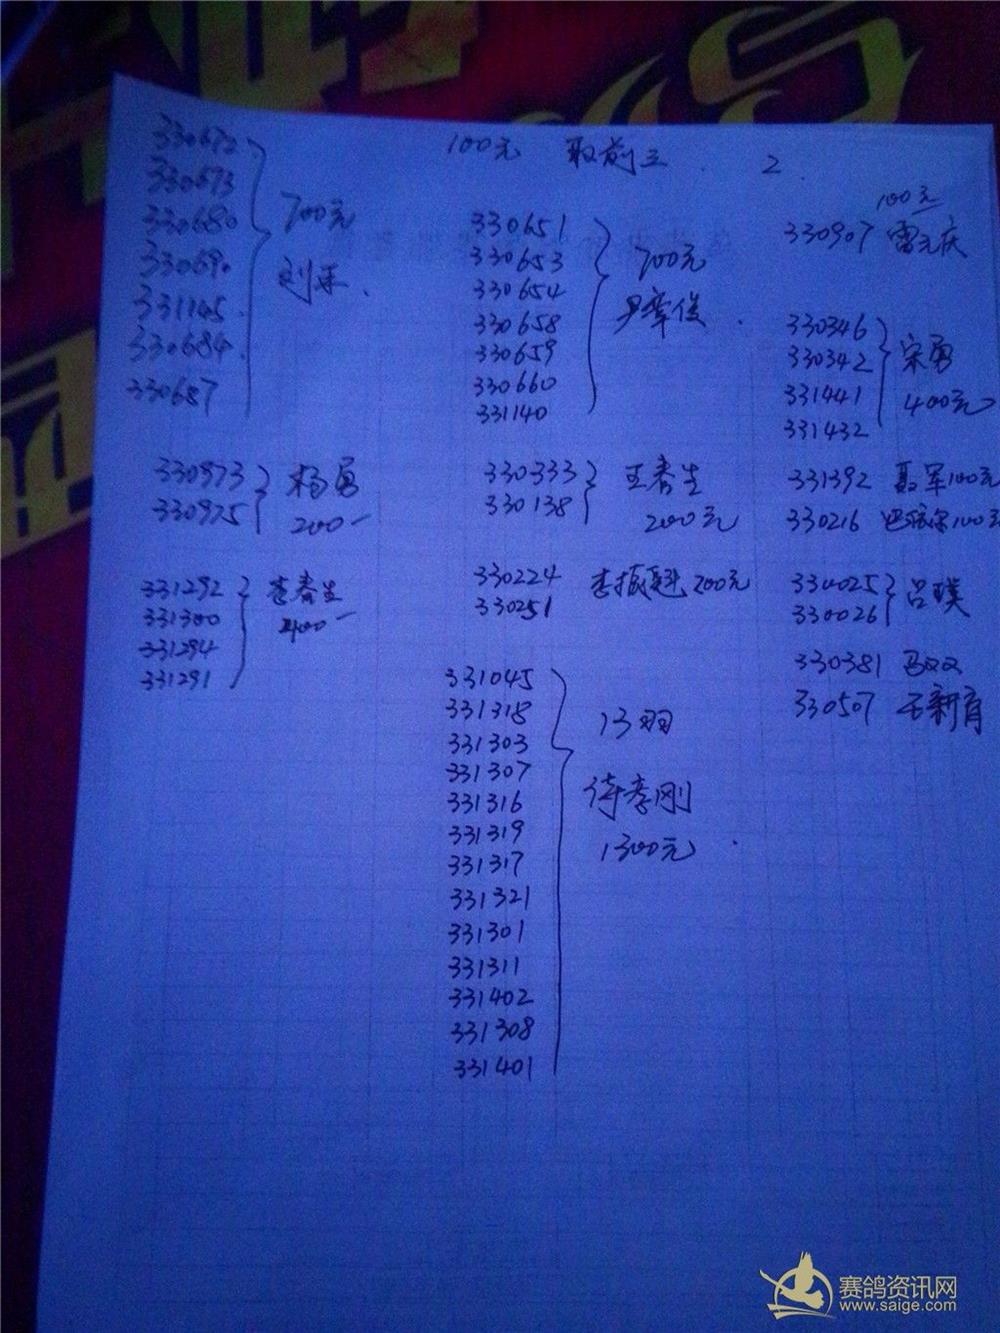 100元 取前三 2
330672
330673
330680
330690
331145
330684
330687
700元
330973
330975
杨勇
200一
331292
331300
331294
331291
李春生
400一
330651
330653
330654
330658
330659
330660
331140
700元
330333
330138
王春生
200元
330224
330251
李振魁 200元
331045
331318
331303
331307
331316
331319
331317
331321
331301
331311
331402
331308
331401
13羽
待孝刚
1300元
100元
330907 雷元庆
330346
330342
331441
331432
宋勇
400元
331392 聂军100元
330216 100元
330025
330026
吕璞
330381 马双双
330507 王新育
赛鸽资讯网
www.saige.com